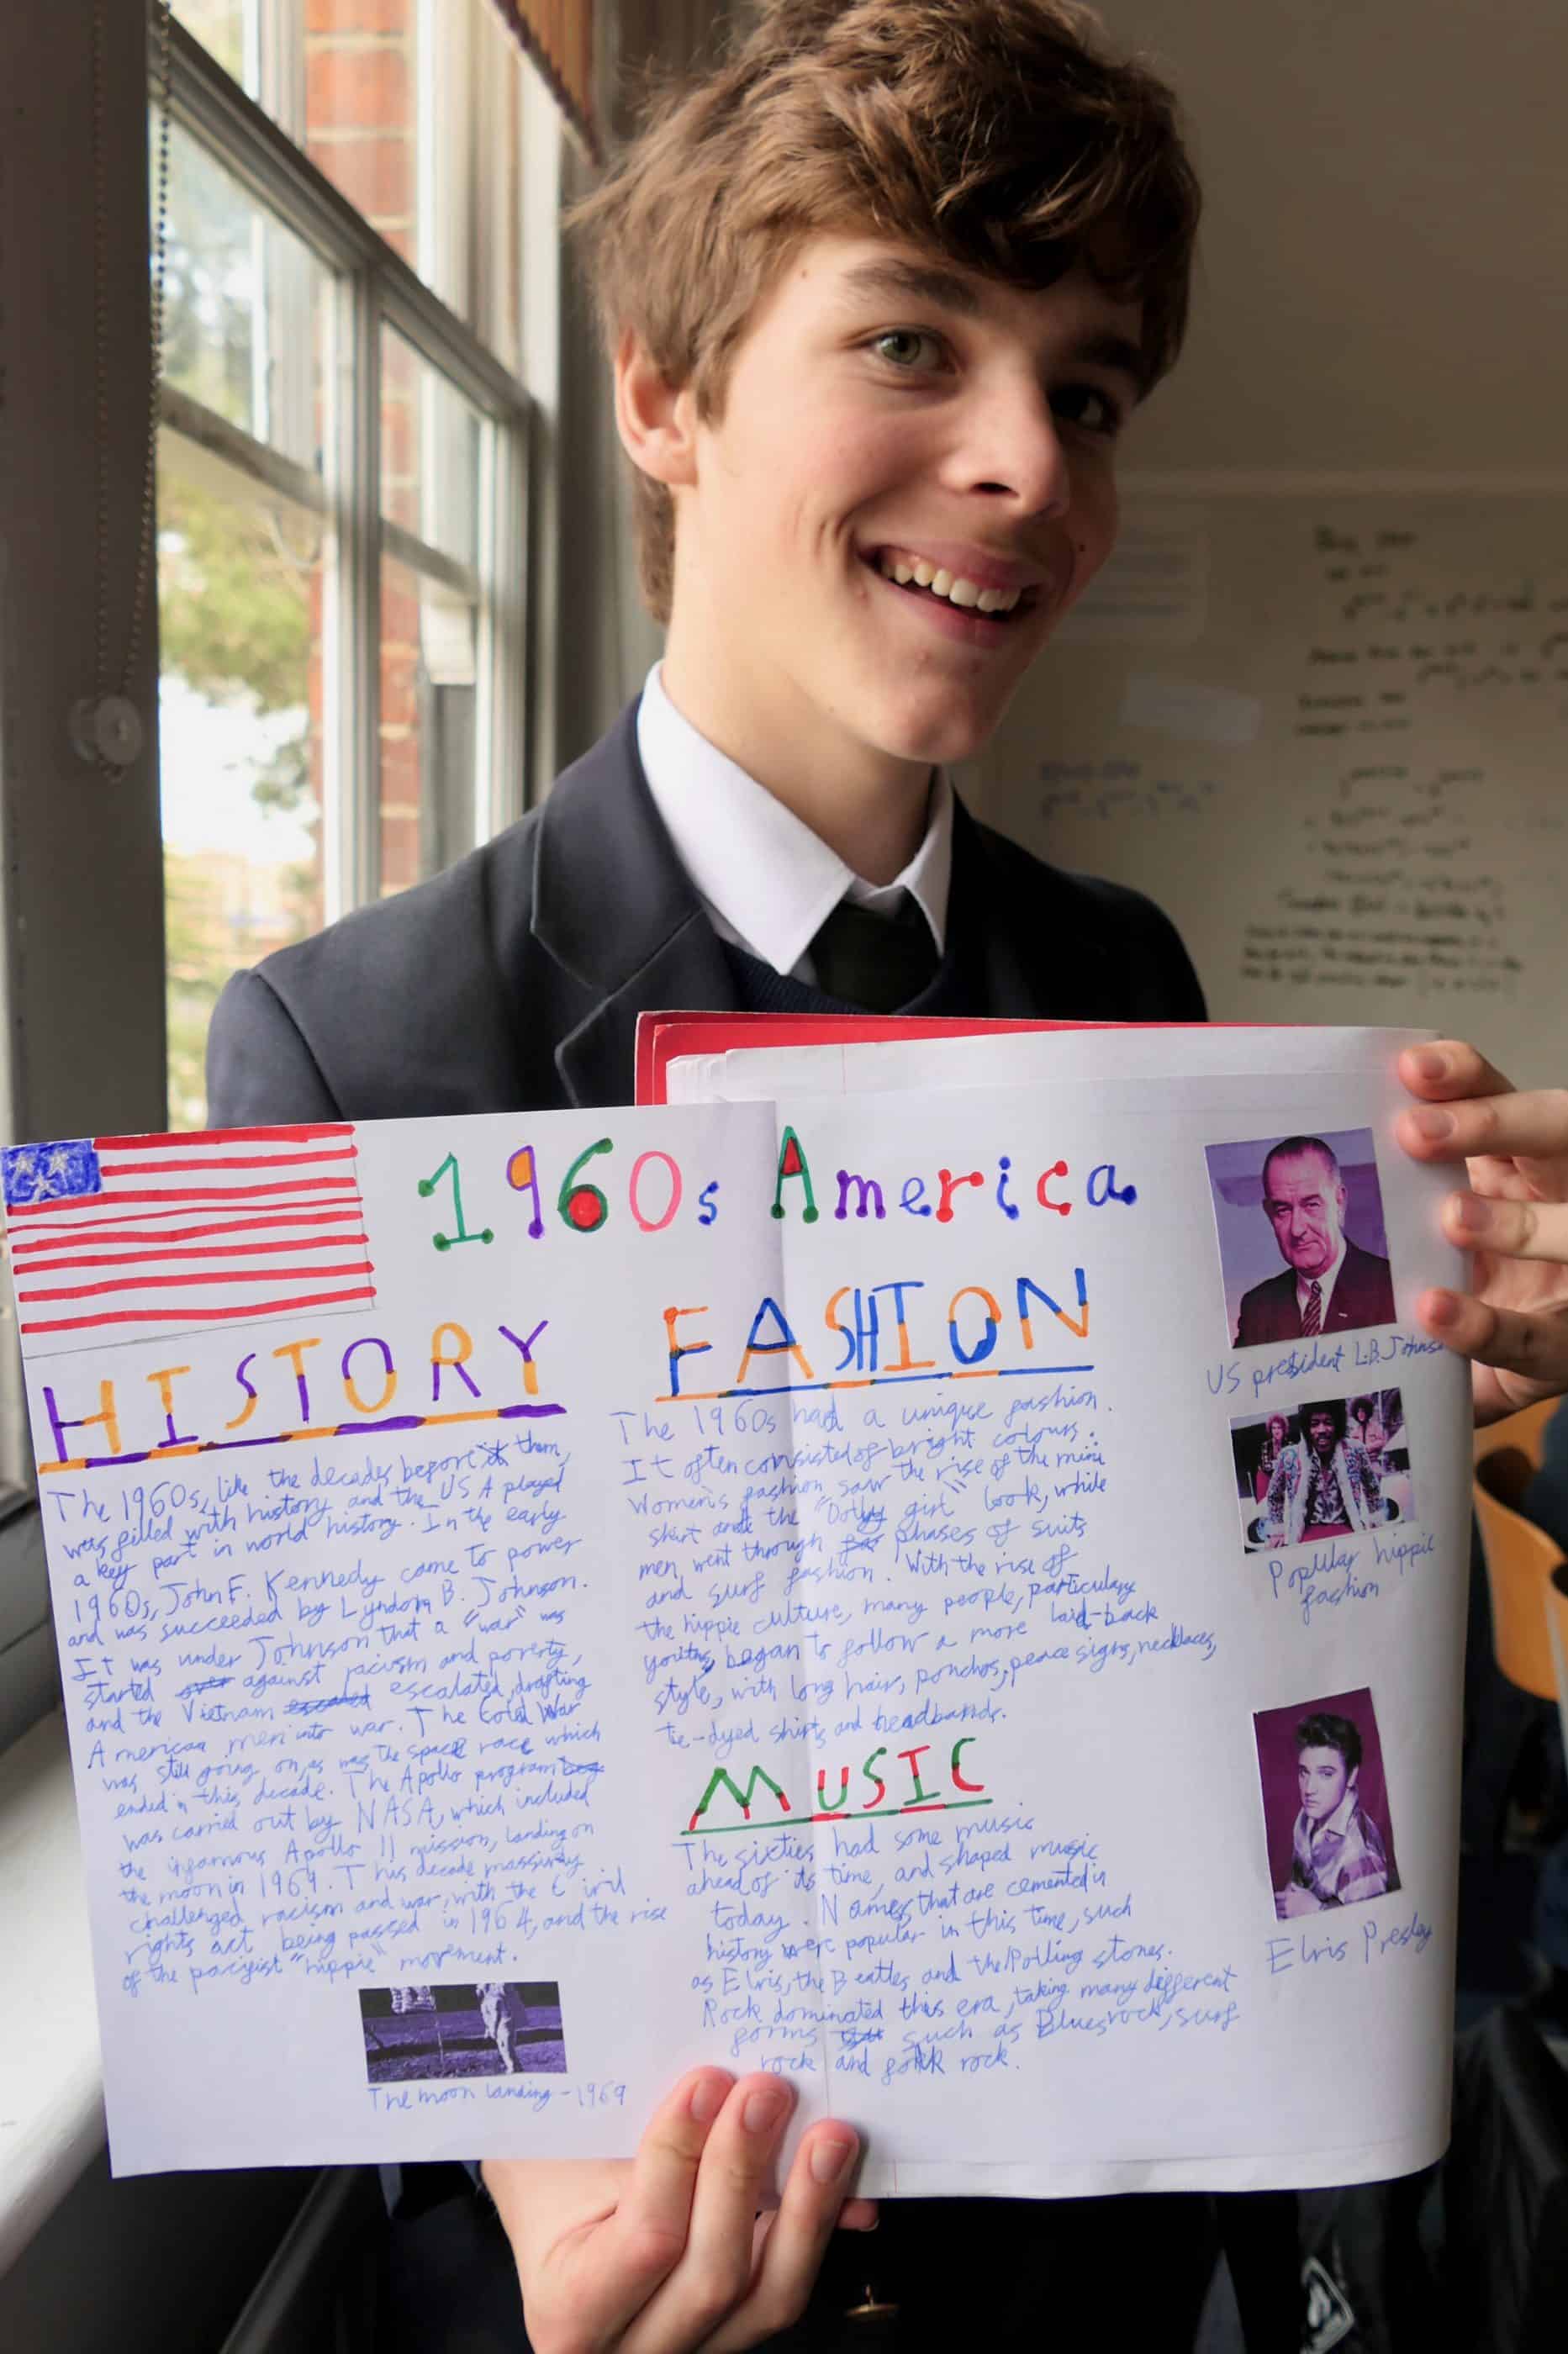 1960s America
HISTORY
The 1960s, like the decades before them,
was filled with history and the USA played
a key part in world history. In the early
1960s, John F. Kennedy came to power
and was succeeded by Lyndon B. Johnson.
It was under Johnson that a "war" was
started over against racism and poverty,
and the Vietnam escaled escalated, drafting
American men into war. The Cold War
was still going on, as was the space race which
ended in this decade. The Apollo program
was carried out by NASA, which included
the infamous Apollo 11 mission, landing on
the moon in 1969. This decade massively
challenged racism and war, with the Civil
rights act being passed in 1964, and the rise
of the pacifist "hippie" movement.
The moon landing - 1969
FASHION
The 1960s had a unique fashion.
It often consisted of bright colours.
Women's fashion saw the rise of the mini
skirt and the "Dolly girl" look, while
men went through phases of suits
and surf fashion. With the rise of
the hippie culture, many people, particulary
youths, began to follow a more laid-back
style, with long hair, ponchos, peace signs, necklaces,
tie-dyed shirts and headbands.
MUSIC
The sixties had some music
ahead of its time, and shaped music
today. Names that are cemented in
history were popular in this time, such
as Elvis, the Beatles and the Rolling stones.
Rock dominated this era, taking many different
forms such as Bluesrock, surf
rock and folk rock.
US president L.B. Johnso
Popular hippie
fashion
Elvis Presley